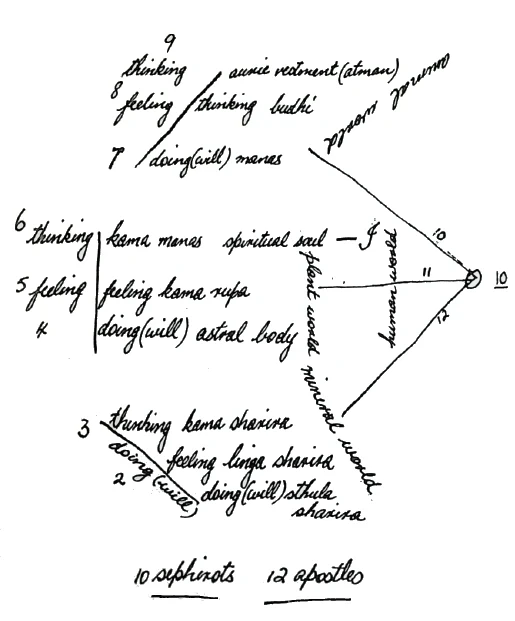 9
thinking auric vestment (atman)
8 feeling thinking budhi
7 doing (will) manas
animal world
6 thinking kama manas spiritual soul — I
5 feeling feeling kama rupa
4 doing (will) astral body
plant world
human world
mineral world
10
11
12
10
3 thinking kama sharira
doing (will)
2
feeling linga sharira
doing (will) sthula
sharira
10 sephirots 12 apostles